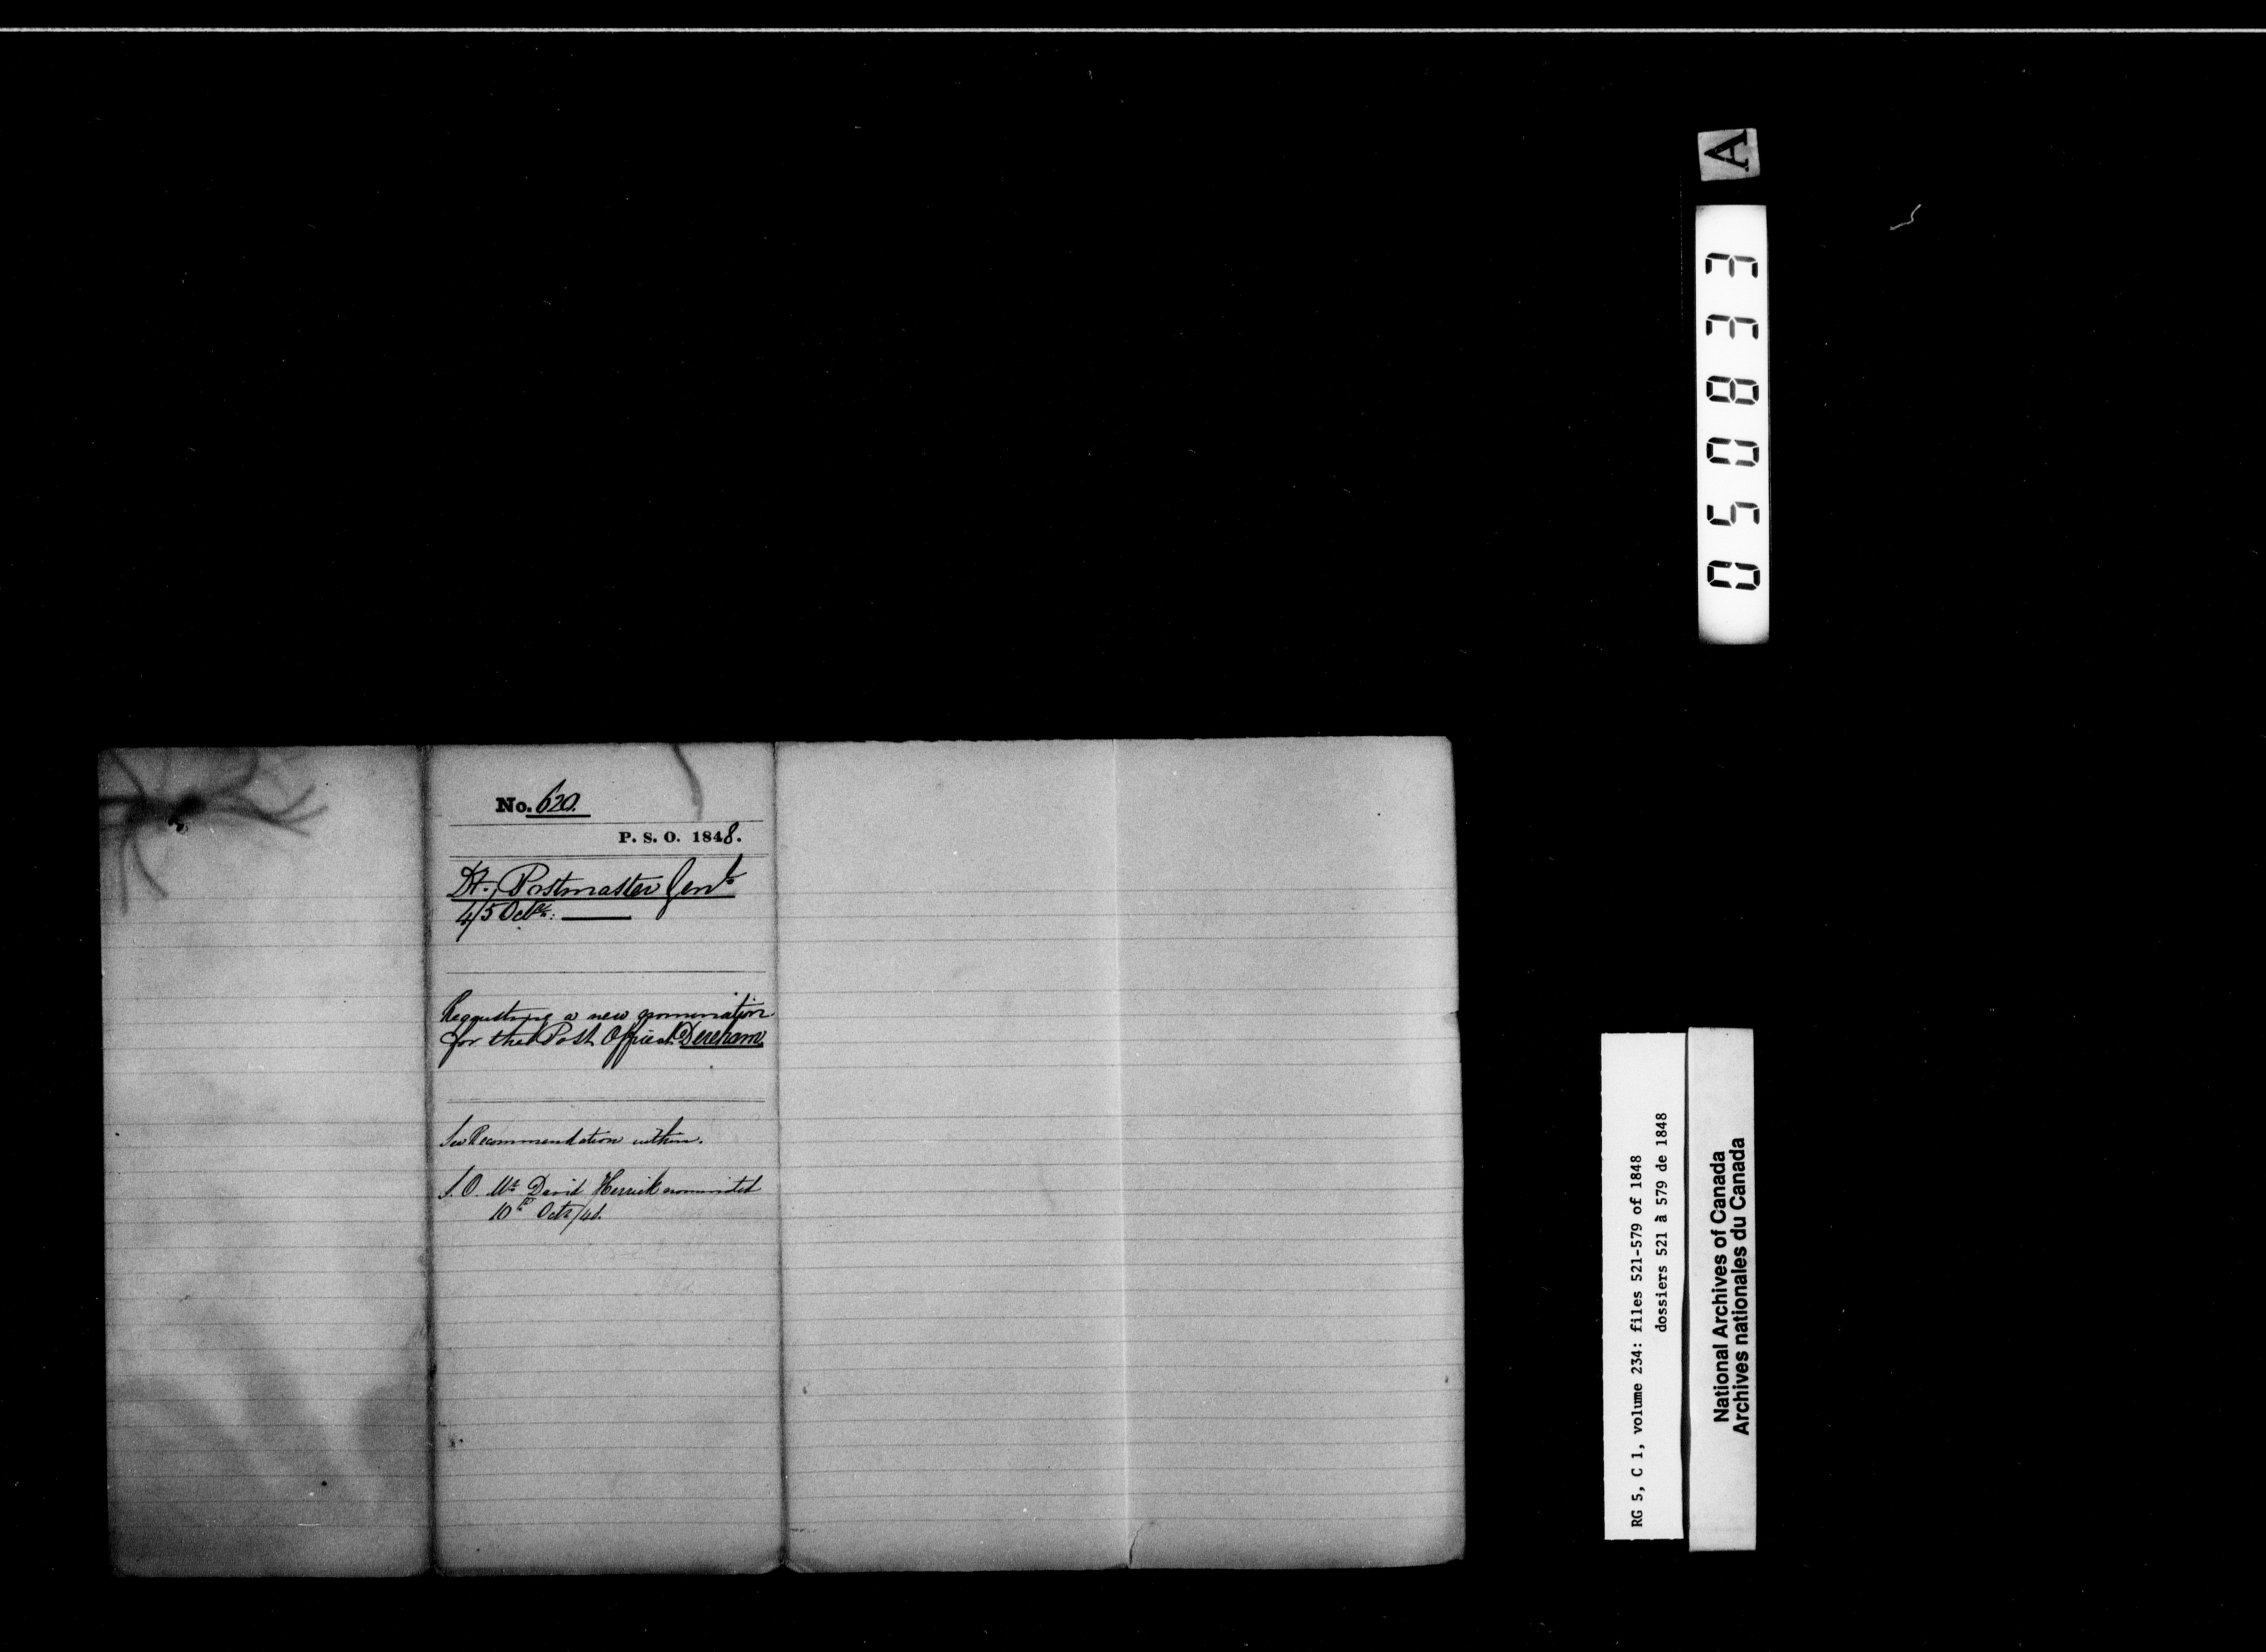 No. 620.
P. S. O. 1848.
Dt. Postmaster Genl.
4/5 Octr.:
Requesting a new nomination
for the Post Office at Dereham
See Recommendation within.
S. O. Mr David Herrick nominated
10th Octr/48.
A
050833
RG 5, C 1, volume 234: files 521-579 of 1848
dossiers 521 à 579 de 1848
National Archives of Canada
Archives nationales du Canada